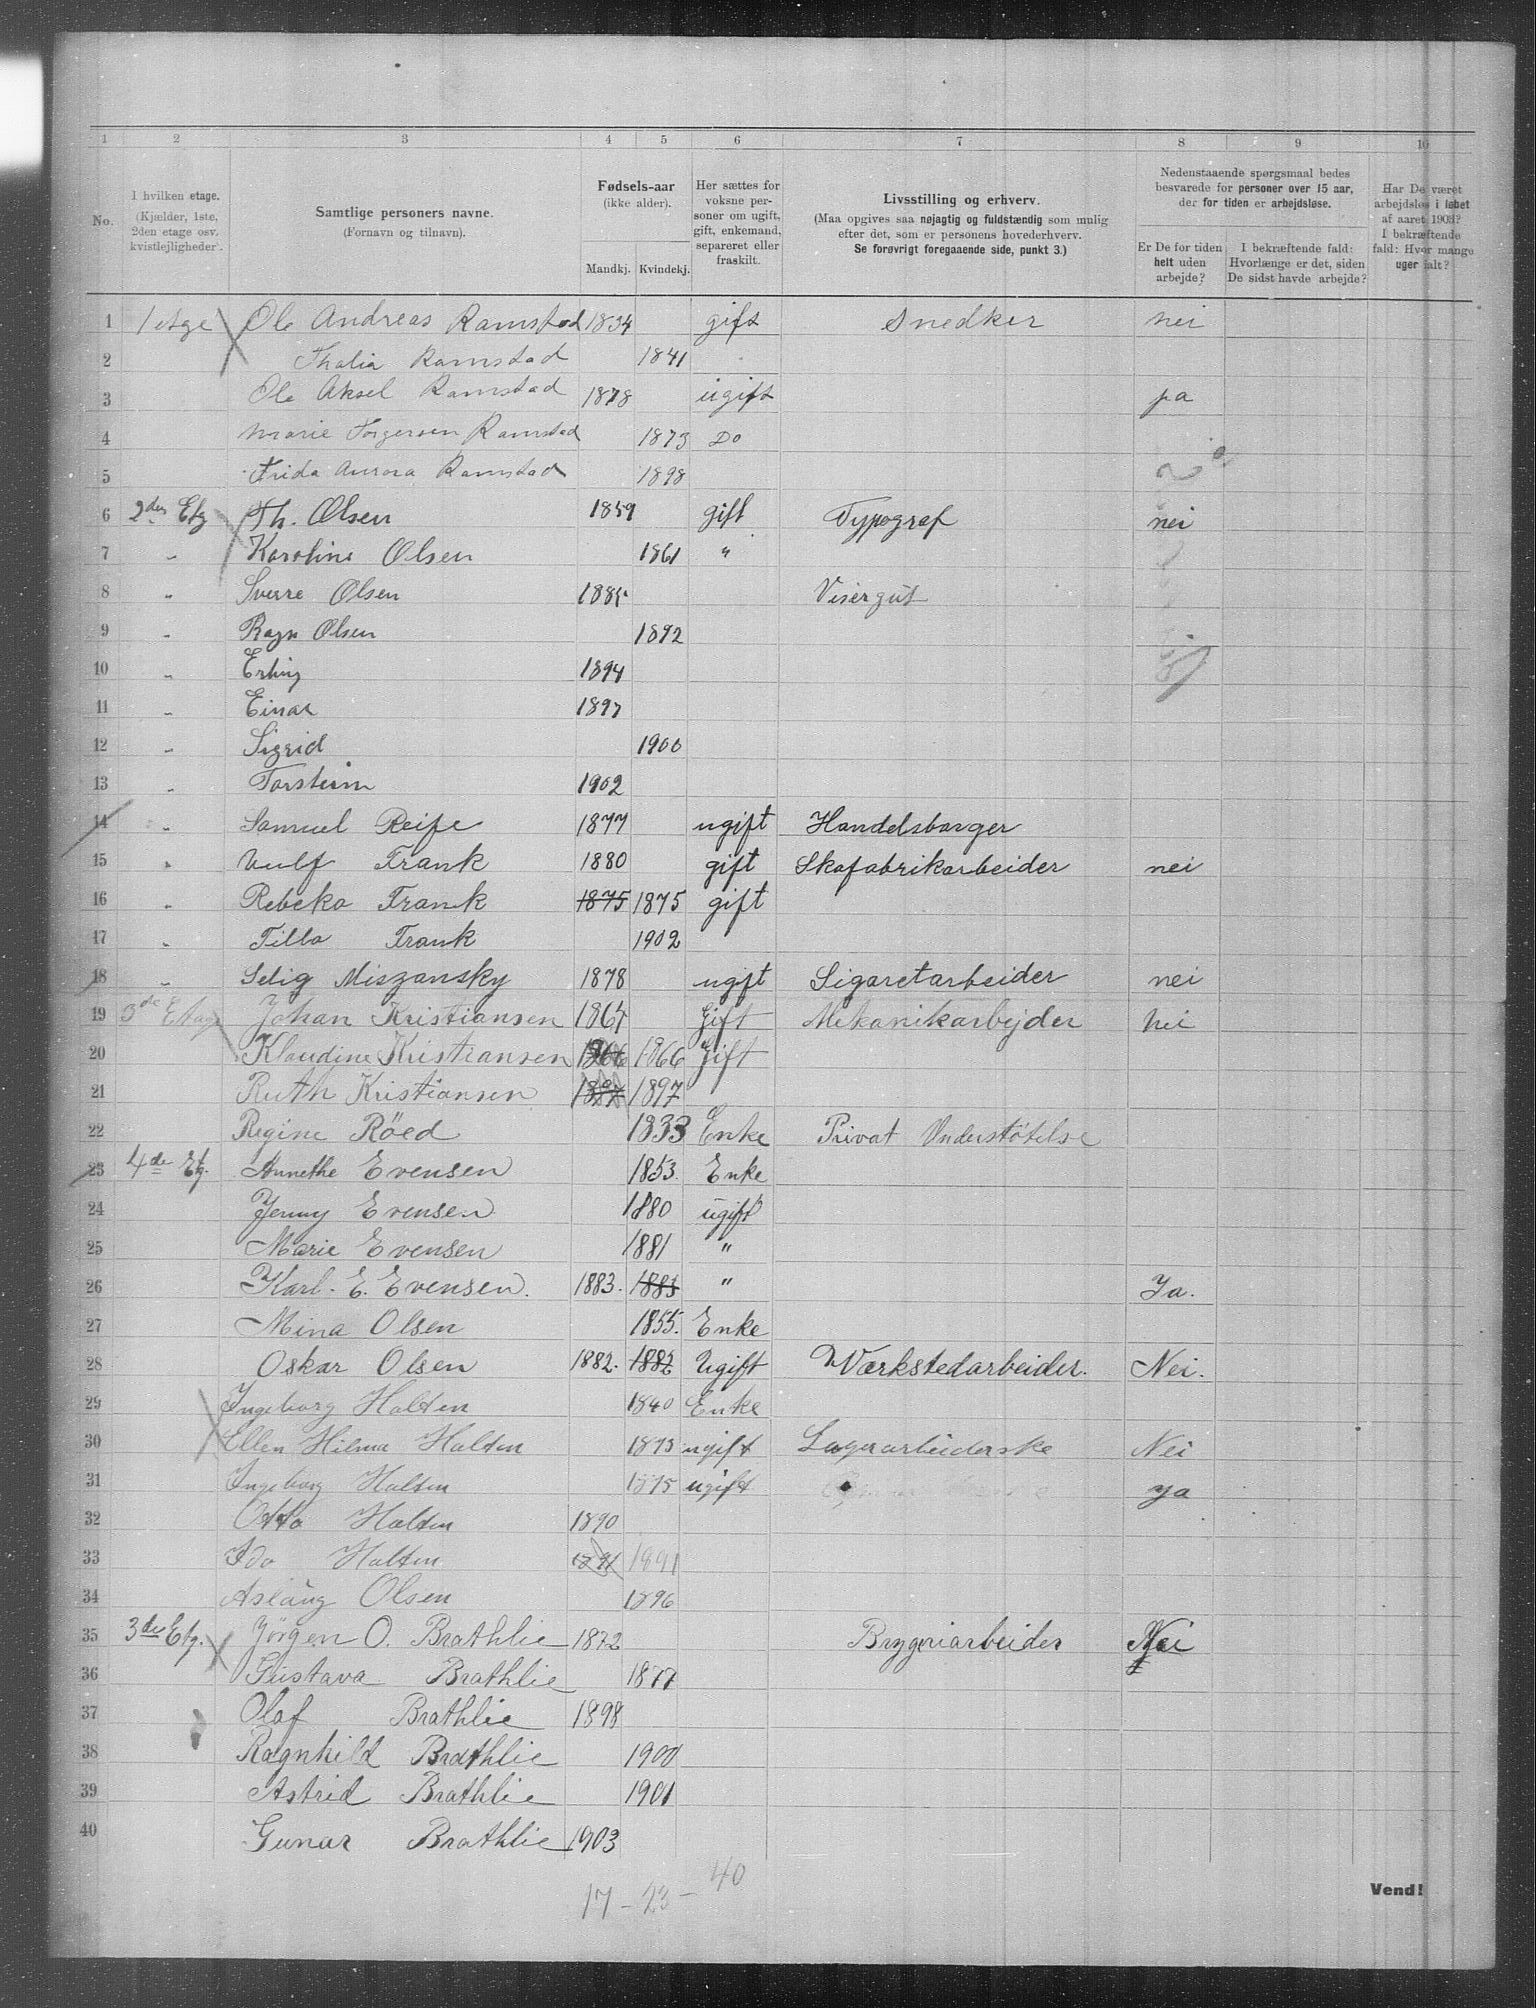 1 2 3 4 5 6 7 8 9 10
No.
I hvilken etage.
(Kjælder, 1ste,
2den etage osv.
kvistlejligheder.
Samtlige personers navne.
(Fornavn og tilnavn).
Fødsels-aar
(ikke alder).
Mandkj. Kvindekj.
Her sættes for
voksne per-
soner om ugift,
gift, enkemand,
separeret eller
fraskilt.
Livsstilling og erhverv.
(Maa opgives saa nøjagtig og fuldstændig som mulig
efter det, som er personens hovederhverv.
Se forøvrigt foregaaende side, punkt 3.)
Nedenstaaende spørgsmaal bedes
besvarede for personer over 15 aar,
der for tiden er arbejdsløse.
Er De for tiden
helt uden
arbejde?
I bekræftende fald:
Hvorlænge er det, siden
De sidst havde arbejde?
Har De været
arbejdsløs i løbet
af aaret 1903?
I bekræftende
fald: Hvor mange
uger ialt?
1 1 etage Ole Andreas Ramstad 1834 gift Snedker nei
2 Thalia Ramstad 1841
3 Ole Aksel Ramstad 1878 ugift ja
4 Marie Torgersen Ramstad 1873 Do
5 Frida Aurora Ramstad 1898
6 2den Etg Th. Olsen 1859 gift Typograf nei
7 " Karoline Olsen 1861 "
8 " Sverre Olsen 1885 Visergut
9 " Ragn Olsen 1892
10 " Erling 1894
11 " Einar 1897
12 " Sigrid 1900
13 " Torstein 1902
14 " Samuel Reife 1877 ugift Handelsborger
15 " Wulf Frank 1880 gift Skofabrikarbeider nei
16 " Rebeka Frank 1875 1875 gift
17 " Tilla Frank 1902
18 " Selig Miszansky 1878 ugift Sigaretarbeider nei
19 3de Etage Johan Kristiansen 1867 Gift Mekanikarbejder nei
20 Klaudine Kristiansen 1866 1866 Gift
21 Ruth Kristiansen 1897 1897
22 Regine Röed 1833 Enke Privat Understøtelse
23 4de Etg. Annethe Evensen 1853. Enke
24 Jenny Evensen 1880 ugift
25 Marie Evensen 1881 "
26 Karl. E. Evensen. 1883. 1883 " Ja.
27 Mina Olsen 1855. Enke
28 Oskar Olsen 1882. 1882 Ugift Værkstedarbeider. Nei.
29 Ingeborg Halten 1840 Enke
30 Ellen Hilma Halten 1873 ugift Lagerarbeiderske Nei
31 Ingeborg Halten 1875 ugift ya
32 Otto Halten 1890
33 Ida Halten 1891 1891
34 Aslaug Olsen 1896
35 3de Etg. Jörgen O. Brathlie 1872 Brygeriarbeider Nei
36 Gustava Brathlie 1877
37 Olaf Brathlie 1898
38 Ragnhild Brathlie 1900
39 Astrid Brathlie 1901
40 Gunar Brathlie 1903
17 - 23 - 40
Vend!